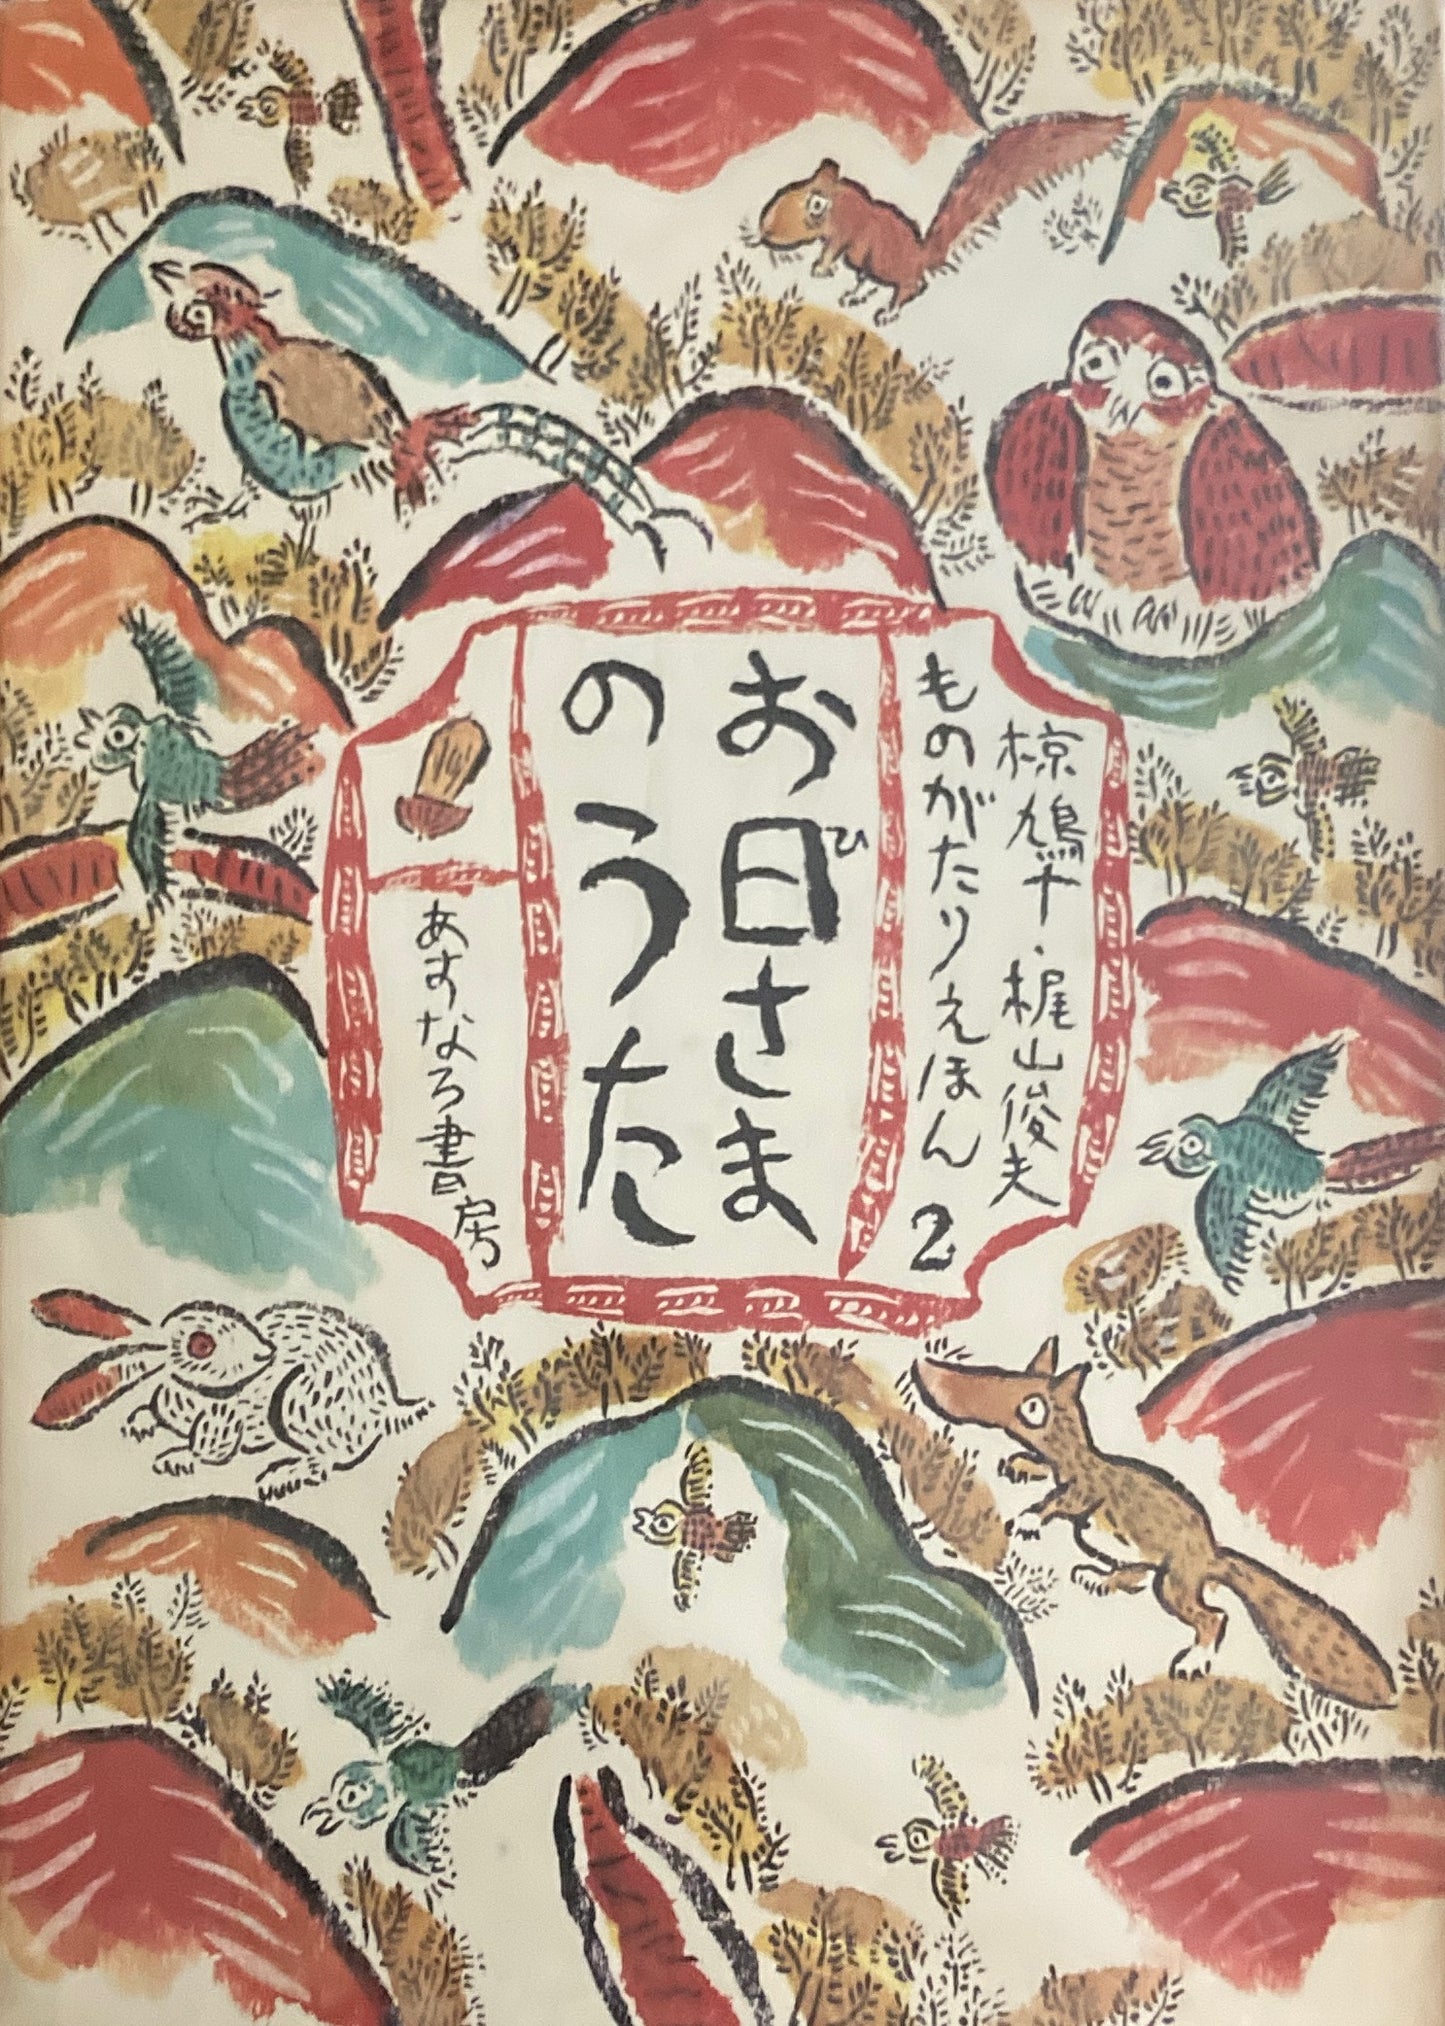 椋鳩十・梶山俊夫
ものがたりえほん2
お日さま
ひ
のうた
あすなろ書房